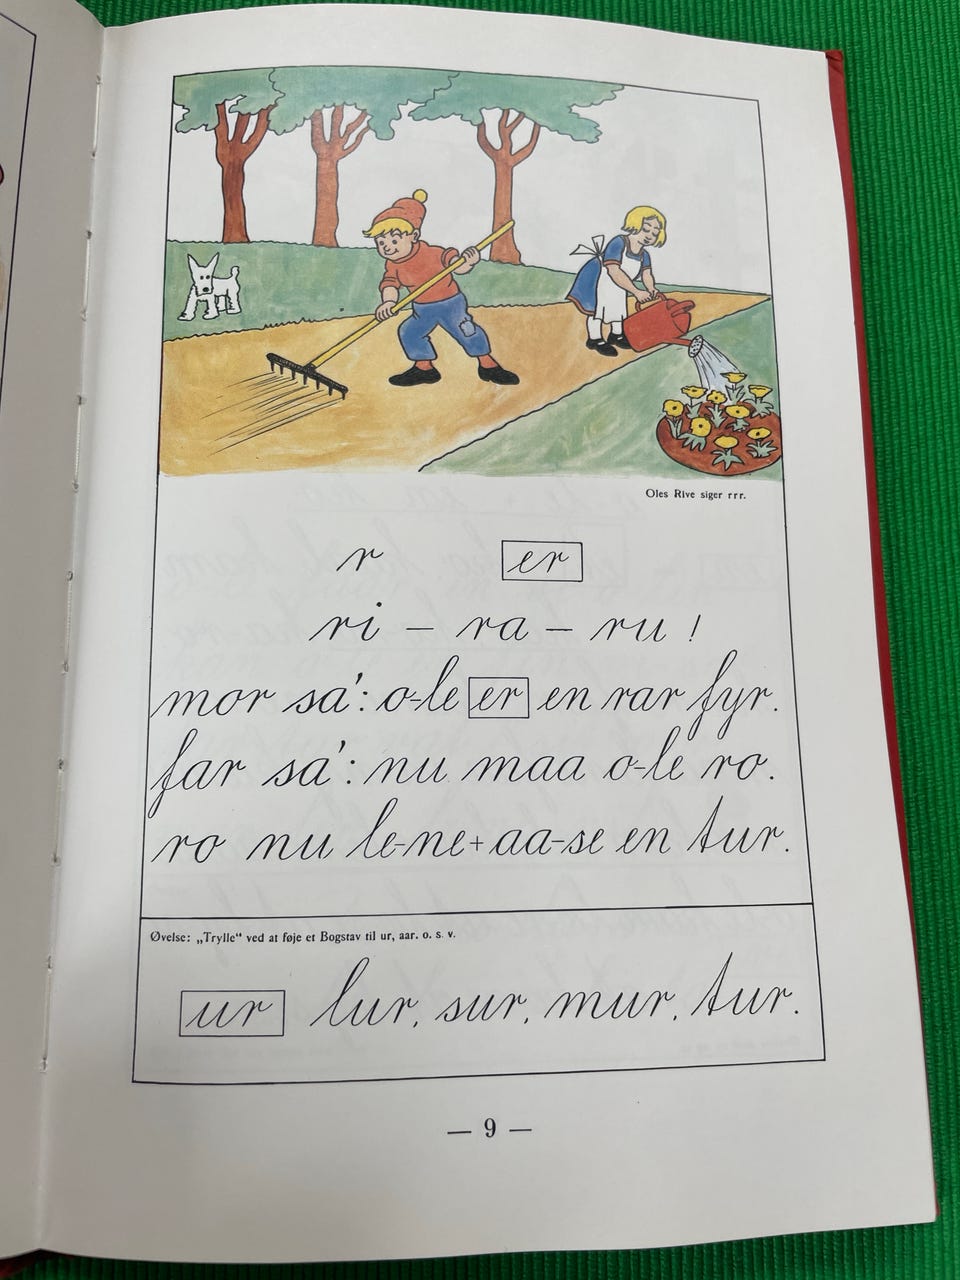 Oles Rive siger rrr.
r er
ri – ra – ru !
mor sa': o-le er en rar fyr.
far sa': nu maa o-le ro.
ro nu le-ne + aa-se en tur.
Øvelse: „Trylle“ ved at føje et Bogstav til ur, aar. o. s. v.
ur lur, sur, mur, tur.
— 9 —